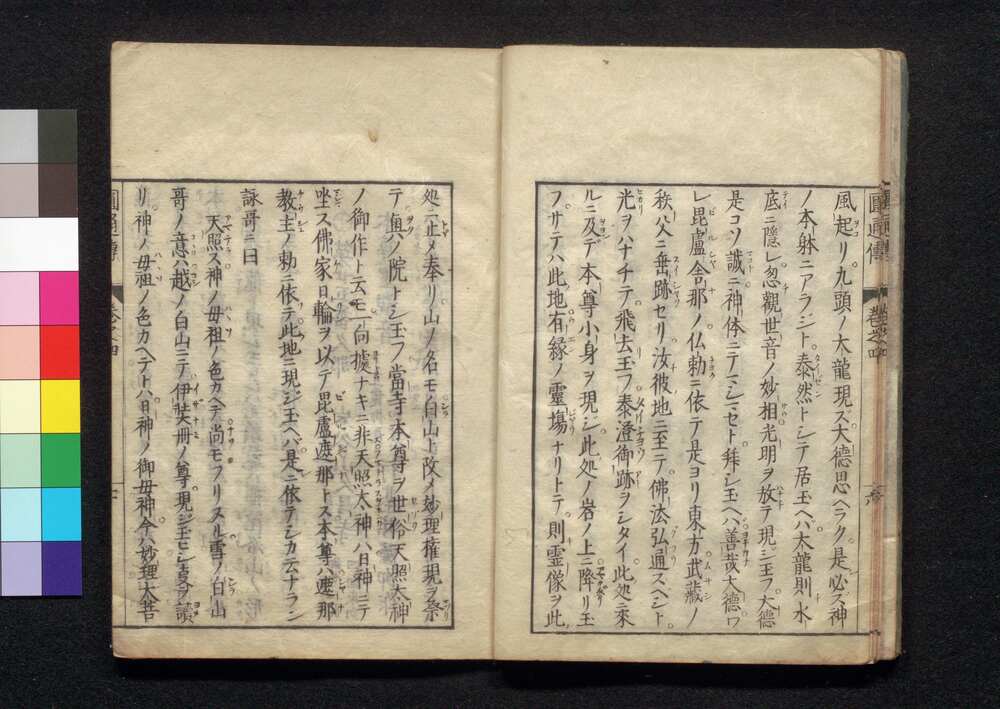 風起リ九頭ノ大龍現ズ大德思ヘラク是必ズ神
ノ本躰ニアラジト泰然トシテ居玉ヘハ大龍則水
底ニ隱レ忽觀世音ノ妙相光明ヲ放テ現ジ玉フ大德
是コソ誠ニ神体ニテマシマセト拜シ玉ヘハ善哉大德ワ
レ毘盧舎那ノ仏勅ニ依テ是ヨリ東方武藏ノ
秩父ニ垂跡セリ汝彼地ニ至テ佛法弘通スヘシト
光ヲハナチテ飛去玉フ泰澄御跡ヲシタイ此処ニ來
ルニ及デ本尊小身ヲ現シ此処ノ岩ノ上ニ降リ玉
フサテハ此地有縁ノ靈塲ナリトテ則霊像ヲ此
処ニ止メ奉リ山ノ名モ白山ト改メ妙理権現ヲ祭
テ奥ノ院トシ玉フ當寺本尊ヲ世俗天照太神
ノ御作ト云モ一向據ナキニ非天照太神ハ日神ニテ
坐ス佛家日輪ヲ以テ毘盧遮那トス本尊ハ遮那
教主ノ勅ニ依テ此地ニ現ジ玉ヘハ是ニ依テシカ云ナラン
詠哥ニ曰
天照ス神ノ母祖ノ色カヘテ尚モフリスル雪ノ白山
哥ノ意ハ越ノ白山ニテ伊弉冊ノ尊現ジ玉ヒシ亊ヲ讀
リ神ノ母祖ノ色カヘテトハ日神ノ御母神今ハ妙理大菩
圓通傳
卷之四
六
圓通傳
卷之四